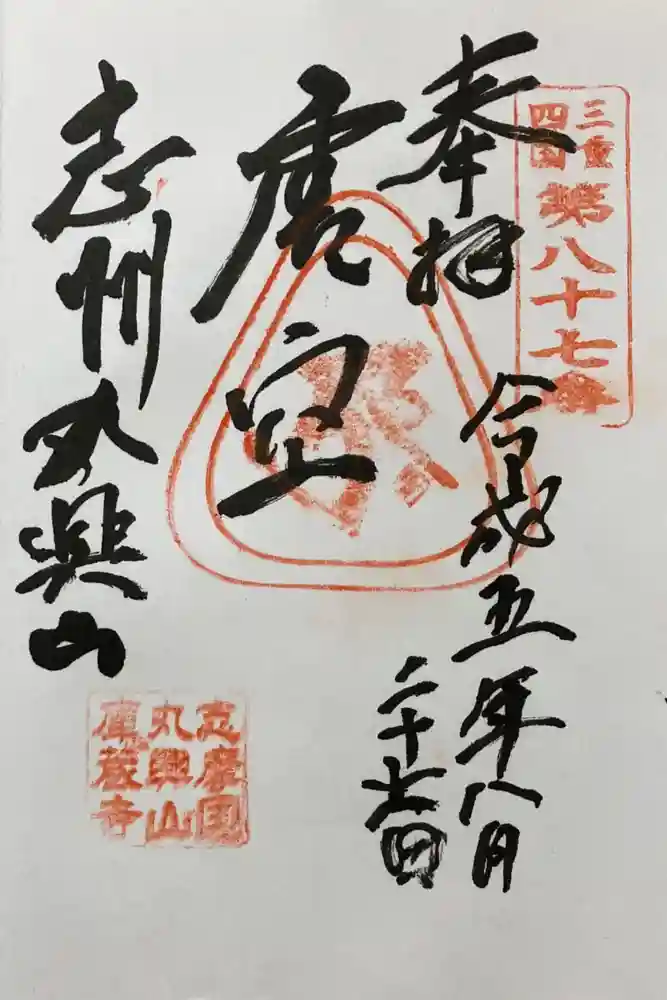 三重
四国
第八十七番
奉拝
令和五年八月
二十七日
虚空
志州丸興山
志摩国
丸興山
庫蔵寺